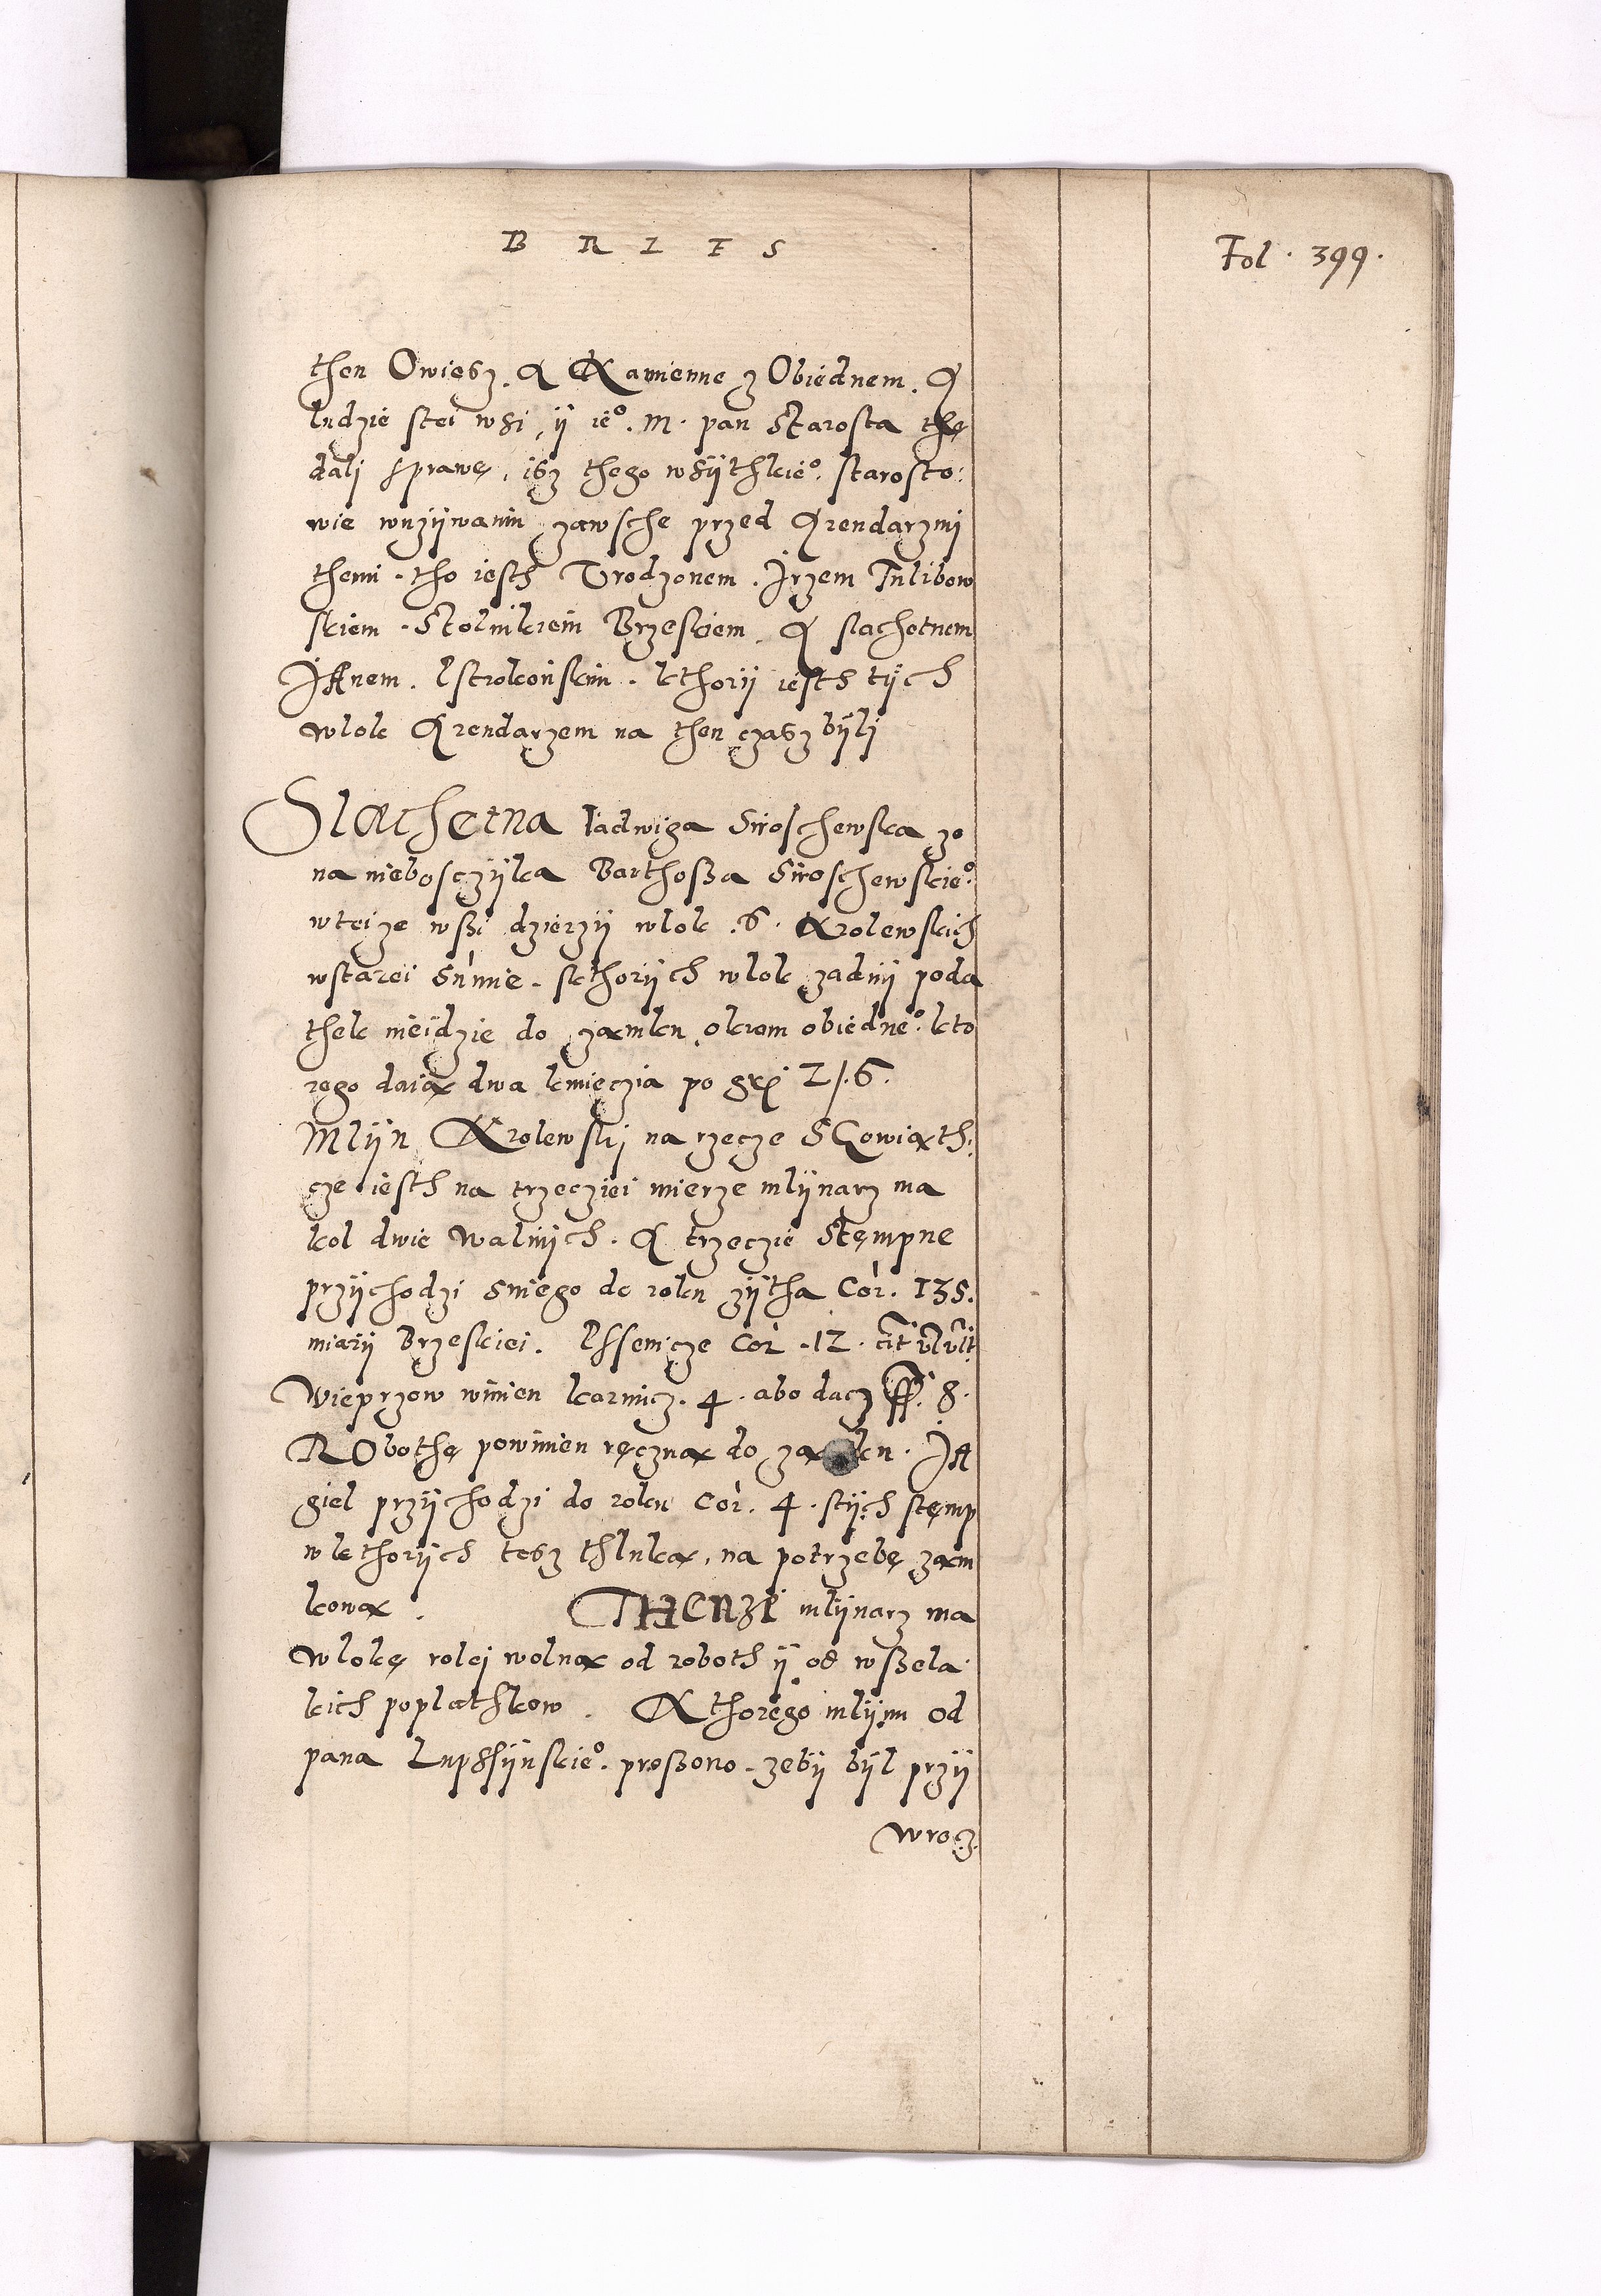 B R I F S
Fol. 399.
then Owiesz. A Kamienne z Obiednem. A
ludzie stei wsi, ÿ ie°. M. pan Starosta thę
dalj sprawę, isz thego wsÿthkie°. starosto:
wie wuzÿwaniu zawsche przed Arendarzmi
themi. tho iesth Urodzonem. Jrzem Tulibow
skiem. Stolnikiem Brzeskiem. A slachetnem
JAnem. Ustrokońskim. kthorÿ iesth tÿch
wlok Arendarzem na then czasz bÿlj
Slachetna Iadwiga Siroschewska zo
na niebosczÿka Barthossa Siroschewskie°.
wteize wssi dzierzÿ wlok .6. Krolewskich
wstarei Sumie. skthorÿch wlok zadnÿ poda
thek nieidzie do zamku okrom obiedne°. kto
rego daią dwa kmieczia po gr 2/.6.
Mlÿn Krolewskj na rzecze SGowiąth:
cze iesth na trzecziei mierze mlÿnarz ma
kol dwie walnÿch. A trzeczie Stempne
przÿchodzi sniego do roku zÿtha Cor. 135.
miarÿ Brzeskiei. Pssenicze Cor. 12.
Wieprzow winien karmicz. 4. abo dacz ff. 8.
RObothę powinien ręczną do zamku. JA
giel przÿchodzi do roku Cor. 4. stÿch stęmp
wkthorÿch tesz thluką, na potrzebę zam
kową. THENZE mlÿnarz ma
wlokę rolej wolną od roboth ÿ od wssela
kich poplathkow. Kthorego mlÿnu od
pana Lupssÿnskie°. prossono. zebÿ bÿl przÿ
wrocz.